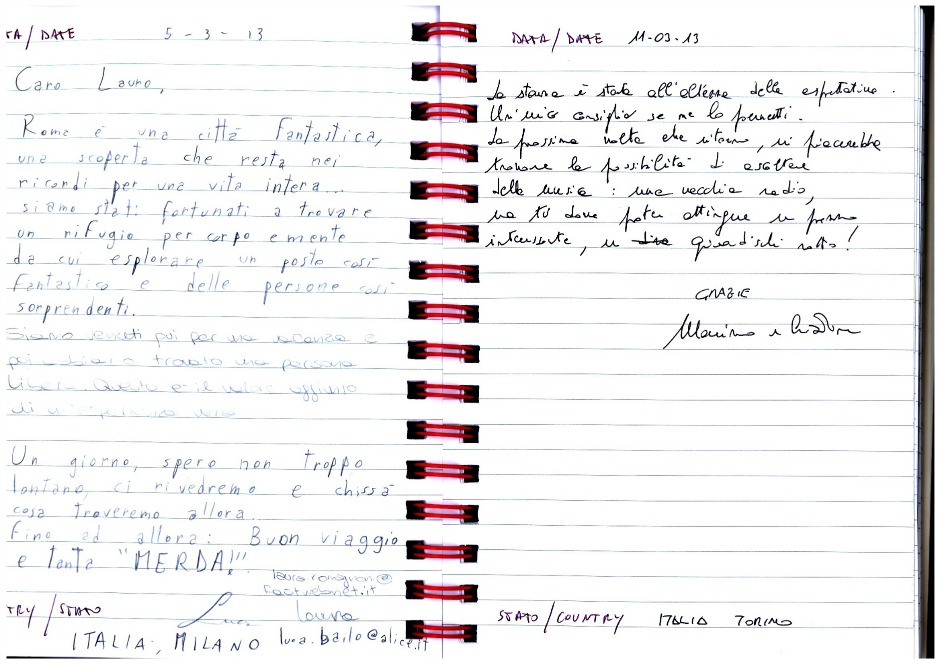 TA / DATE 5-3-13
Caro Lauro,
Roma è una città fantastica,
una scoperta che resta nei
ricordi per una vita intera...
siamo stati fortunati a trovare
un rifugio per corpo e mente
da cui esplorare un posto così
fantastico e delle persone così
sorprendenti.
Siamo venuti qui per una vacanza e
poi abbiamo trovato una persona
libera. Questo è il valore aggiunto
di
Un giorno, spero non troppo
lontano, ci rivedremo e chissà
cosa troveremo allora...
Fino ad allora: Buon viaggio
e tanta "MERDA!!"
Laura
TRY / STATO
ITALIA, MILANO luca.bailo@alice.it
DATA / DATE 11-03-13
La stanza è stata all'altezza delle aspettative.
Un mio consiglio se me lo permetti.
La prossima volta che ritorno, mi piacerebbe
trovare la possibilità di ascoltare
della musica: una vecchia radio,
ma tu dove poter attingere
interessante, quadischi rotto!
GRAZIE
Massimo e
STATO / COUNTRY ITALIA TORINO